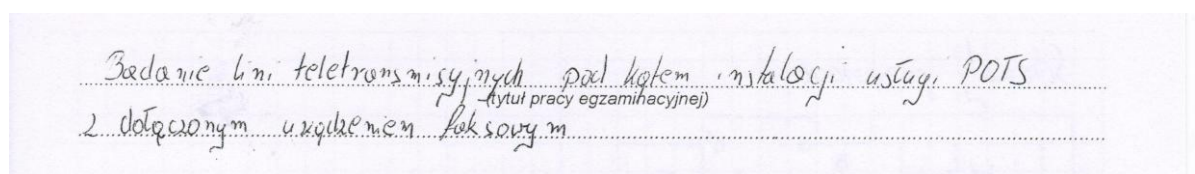 Badanie lini teletransmisyjnych pod kątem instalacji usługi POTS
(tytuł pracy egzaminacyjnej)
z dołączonym urządzeniem faksowym